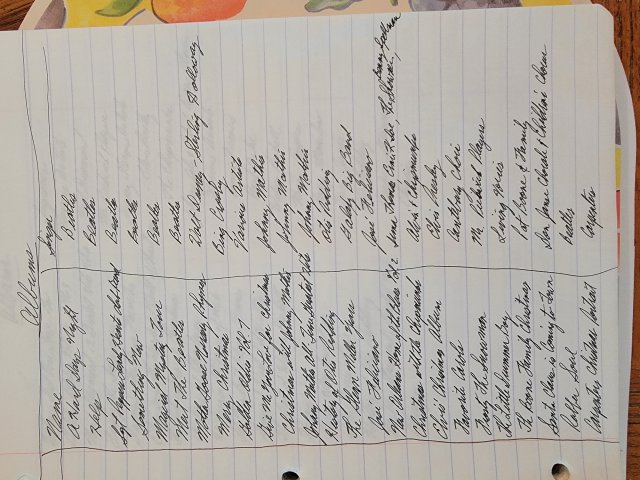 Albums
Name Singer
A Hard Day's Night Beatles
Help Beatles
Sgt Pepper Lonely Hearts Club Band Beatles
Something New Beatles
Magical Mystery Tour Beatles
Meet The Beatles Beatles
Mother Goose Nursery Rhymes Walt Disney - Sterling Holloway
Merry Christmas Bing Crosby
Golden Oldies Vol. 7 Various Artists
Give Me Your Love for Christmas Johnny Mathis
Christmas with Johnny Mathis Johnny Mathis
Johnny Mathis All Time Greatest Hits Johnny Mathis
Otis Redding
The Glenn Miller Galaxy Big Band
Jose Feliciano Jose Feliciano
The Vol. 2
Christmas with the Chipmunks Alvin & Chipmunks
Elvis' Christmas Album Elvis Presley
Favorite Carols Canterbury Choir
Mr Pickwick Players
A Little Drummer Boy Living Voices
The Boone Family Christmas Pat Boone & Family
Santa Claus is Coming to Town San Jose Choral & Children Chorus
Rubber Soul Beatles
Carpenters Christmas Portrait Carpenters